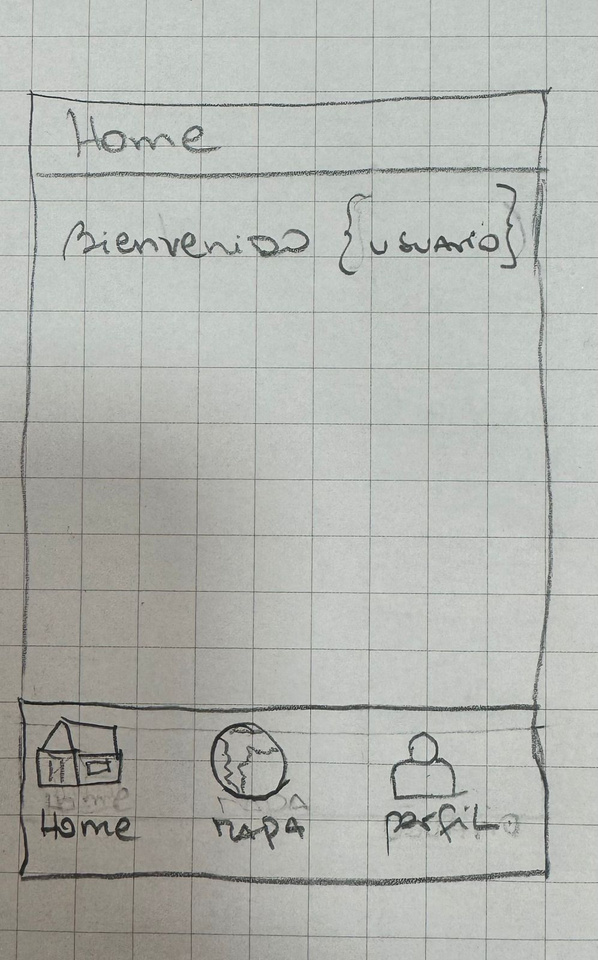 Home
Bienvenido {usuario}
Home
Mapa
perfil